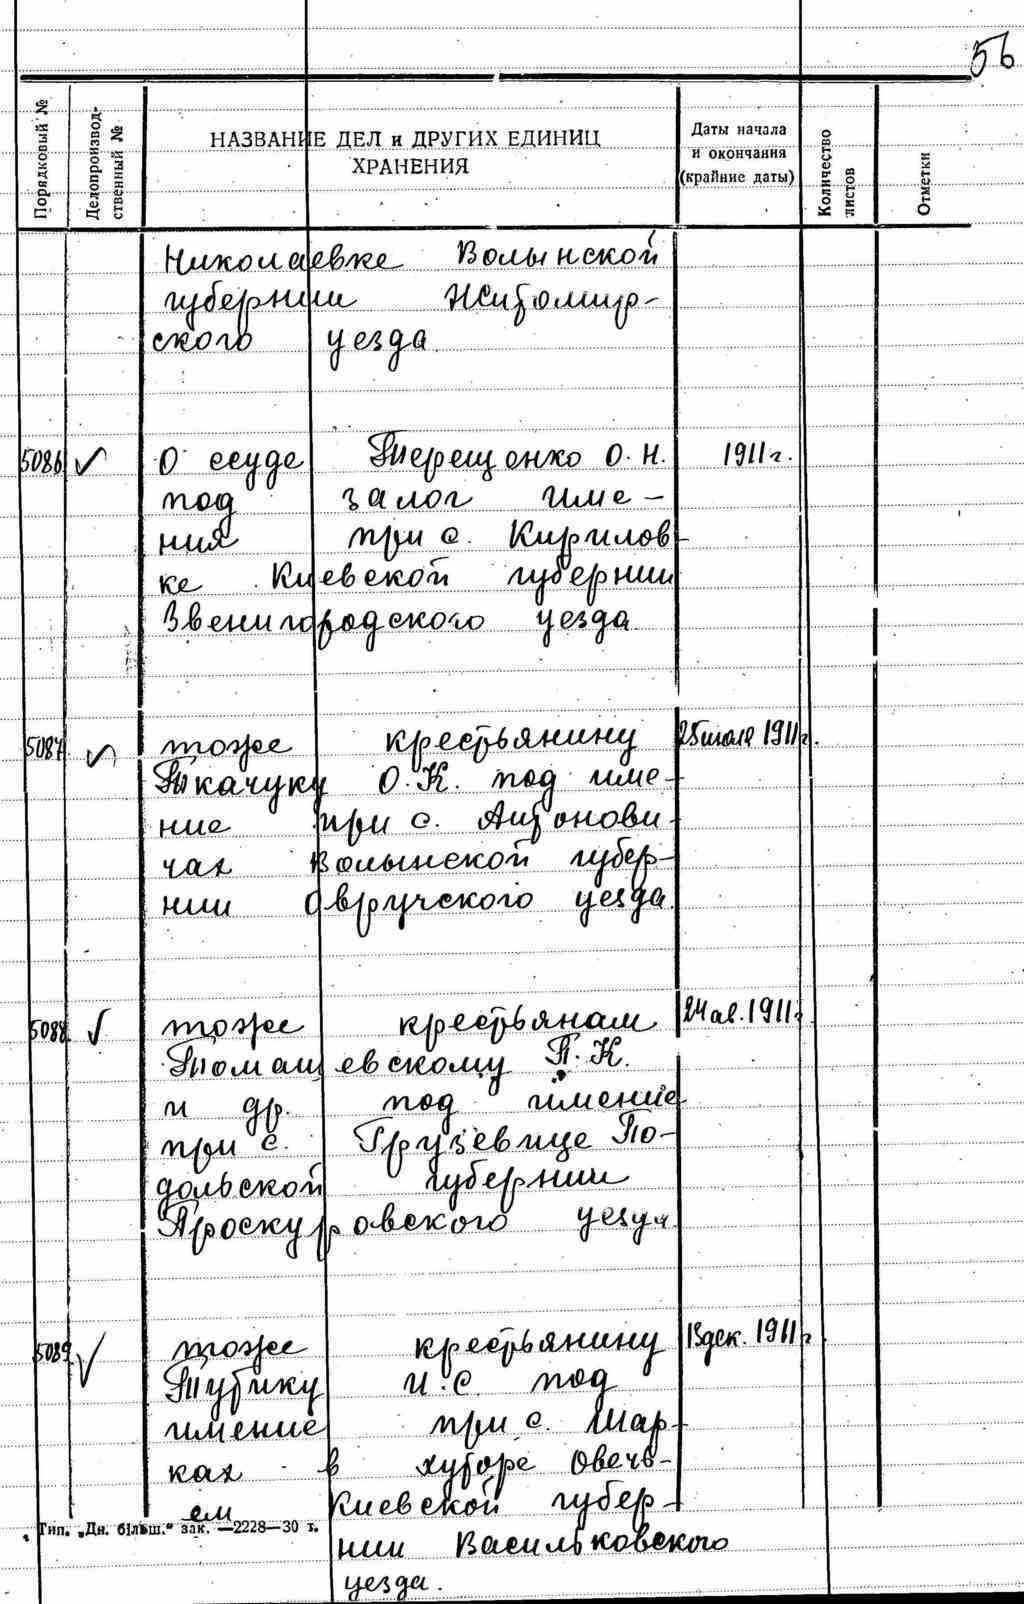 56
Порядковый №
Делопроизвод-
ственный №
НАЗВАНИЕ ДЕЛ и ДРУГИХ ЕДИНИЦ
ХРАНЕНИЯ
Даты начала
и окончания
(крайние даты)
Количество
листов
Отметки
Николаевке Волынской
губернии Житомир-
ского уезда.
5086 ✓ О ссуде Терещенко О.Н. 1911 г.
под залог име-
ния при с. Кирилов
ке Киевской губернии
Звенигородского уезда
5087 ✓ тоже крестьянину 25 июля 1911 г.
Ткачуку О.К. под име-
ние при с. Антонови-
чах Волынской губер-
нии Овручского уезда.
5088 ✓ тоже крестьянам 24 ав. 1911 г.
Томашевскому П.К.
и др. под имение
при с. Грузевице По-
дольской губернии
Проскуровского уезда
5089 ✓ тоже крестьянину 13 дек. 1911 г
имение при с. Шар-
ках в хуторе Овечь-
ем Киевской губер-
нии Васильковского
уезда.
Тип. „Дн. більш." зак. —2228—30 т.